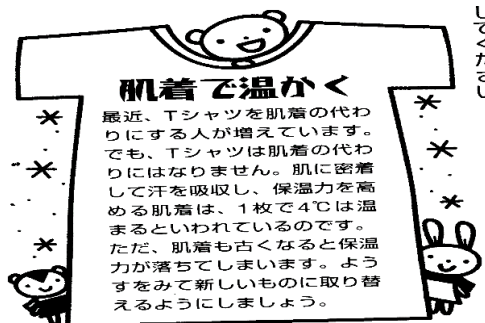 してください
肌着で温かく
最近、Tシャツを肌着の代わ
りにする人が増えています。
でも、Tシャツは肌着の代わ
りにはなりません。肌に密着
して汗を吸収し、保温力を高
める肌着は、1枚で4℃は温
まるといわれているのです。
ただ、肌着も古くなると保温
力が落ちてしまいます。よう
すをみて新しいものに取り替
えるようにしましょう。